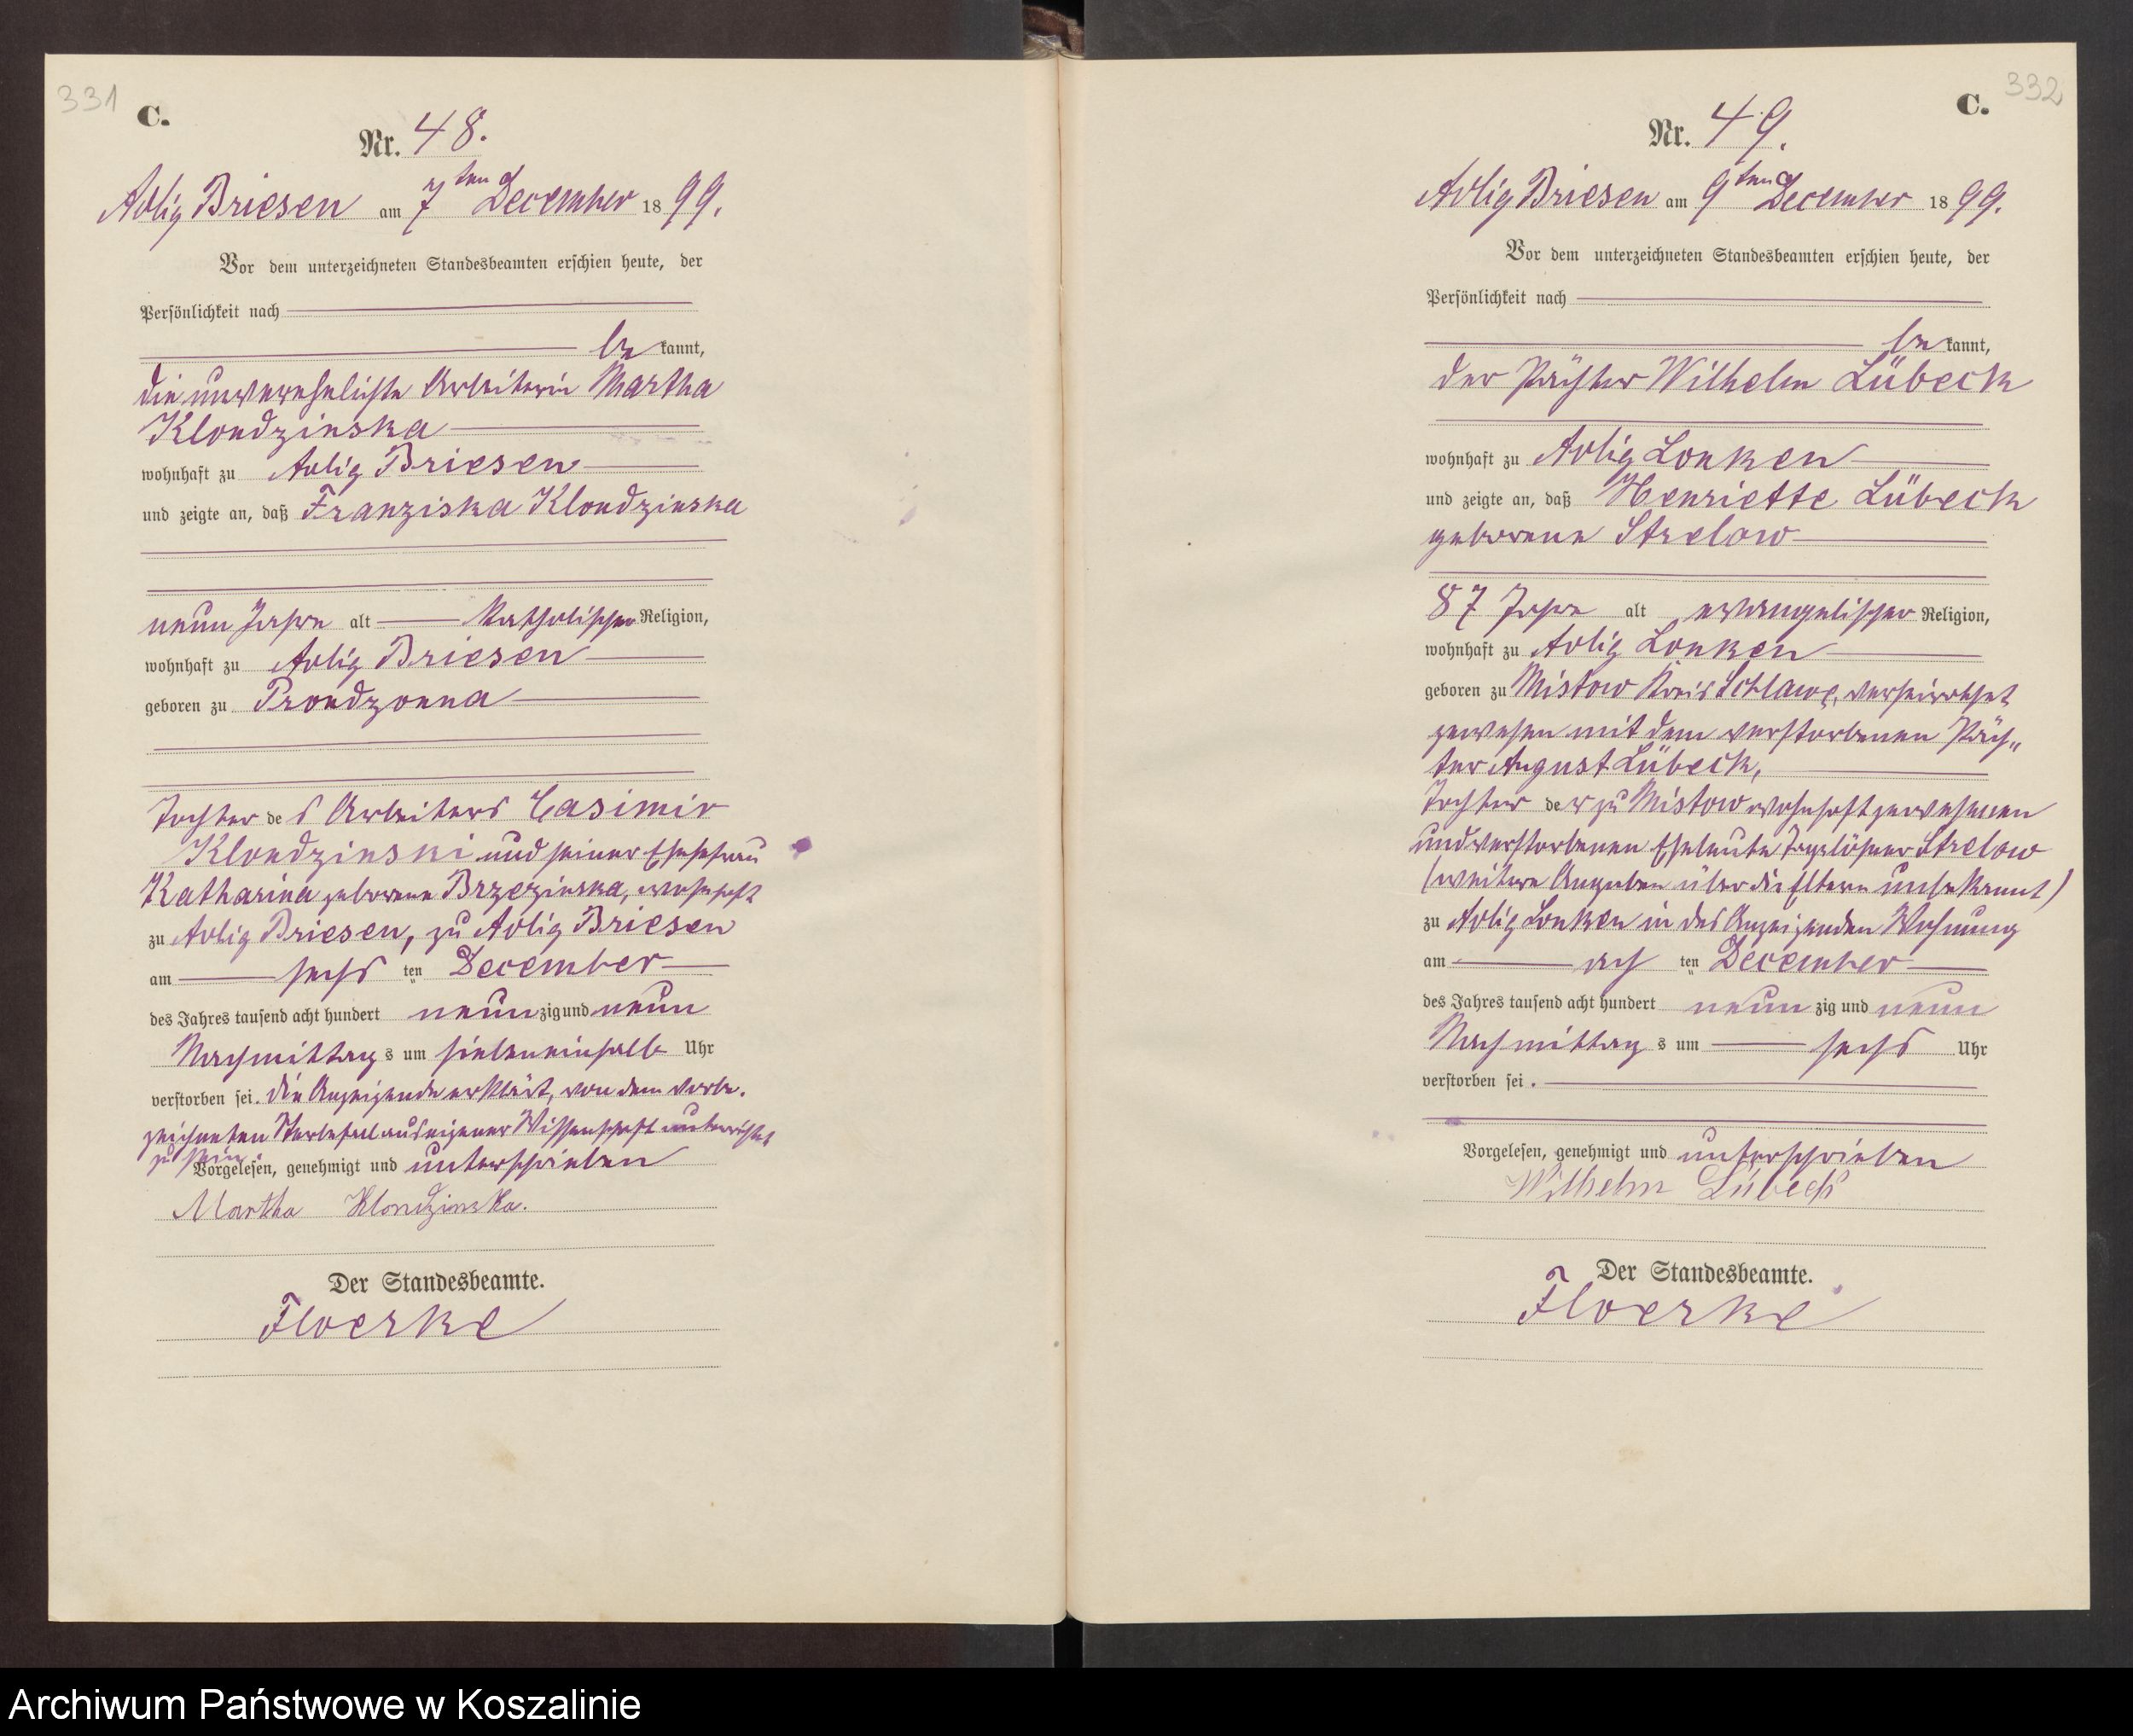 331
C.
Nr. 48.
Adlig Briesen am 7ten December 1899.
Vor dem unterzeichneten Standesbeamten erschien heute, der
Persönlichkeit nach
be kannt,
die unverehelichte Arbeiterin Martha
Klondzinska
wohnhaft zu Adlig Briesen
und zeigte an, daß Franziska Klondzinska
neun Jahre alt katholischer Religion,
wohnhaft zu Adlig Briesen
geboren zu Prondzonna
Tochter des Arbeiters Casimir
Klondzinski und seiner Ehefrau
Katharina geborene Brzezinska, wohnhaft
zu Adlig Briesen, zu Adlig Briesen
am sechsten December
des Jahres tausend acht hundert neunzig und neun
Nachmittags um siebeneinhalb Uhr
verstorben sei. Die Anzeigende erklärt, von dem vorbe-
zeichneten Sterbefall aus eigener Wissenschaft unterrichtet
zu sein.
Vorgelesen, genehmigt und unterschrieben
Martha Klondzinska.
Der Standesbeamte.
Floerke
332
C.
Nr. 49.
Adlig Briesen am 9ten December 1899.
Vor dem unterzeichneten Standesbeamten erschien heute, der
Persönlichkeit nach
be kannt,
der Pächter Wilhelm Lübeck
wohnhaft zu Adlig Lonken
und zeigte an, daß Henriette Lübeck
geborene Strelow
87 Jahre alt evangelischer Religion,
wohnhaft zu Adlig Lonken
geboren zu Mistow Kreis Schlawe, verheirathet
gewesen mit dem verstorbenen Päch„
ter August Lübeck,
Tochter der zu Mistow wohnhaft gewesenen
und verstorbenen Eheleute Tagelöhner Strelow
(weitere Angaben über die Eltern unbekannt)
zu Adlig Lonken in des Anzeigenden Wohnung
am achten December
des Jahres tausend acht hundert neunzig und neun
Nachmittags um sechs Uhr
verstorben sei.
Vorgelesen, genehmigt und unterschrieben
Wilhelm Lübeck
Der Standesbeamte.
Floerke
Archiwum Państwowe w Koszalinie